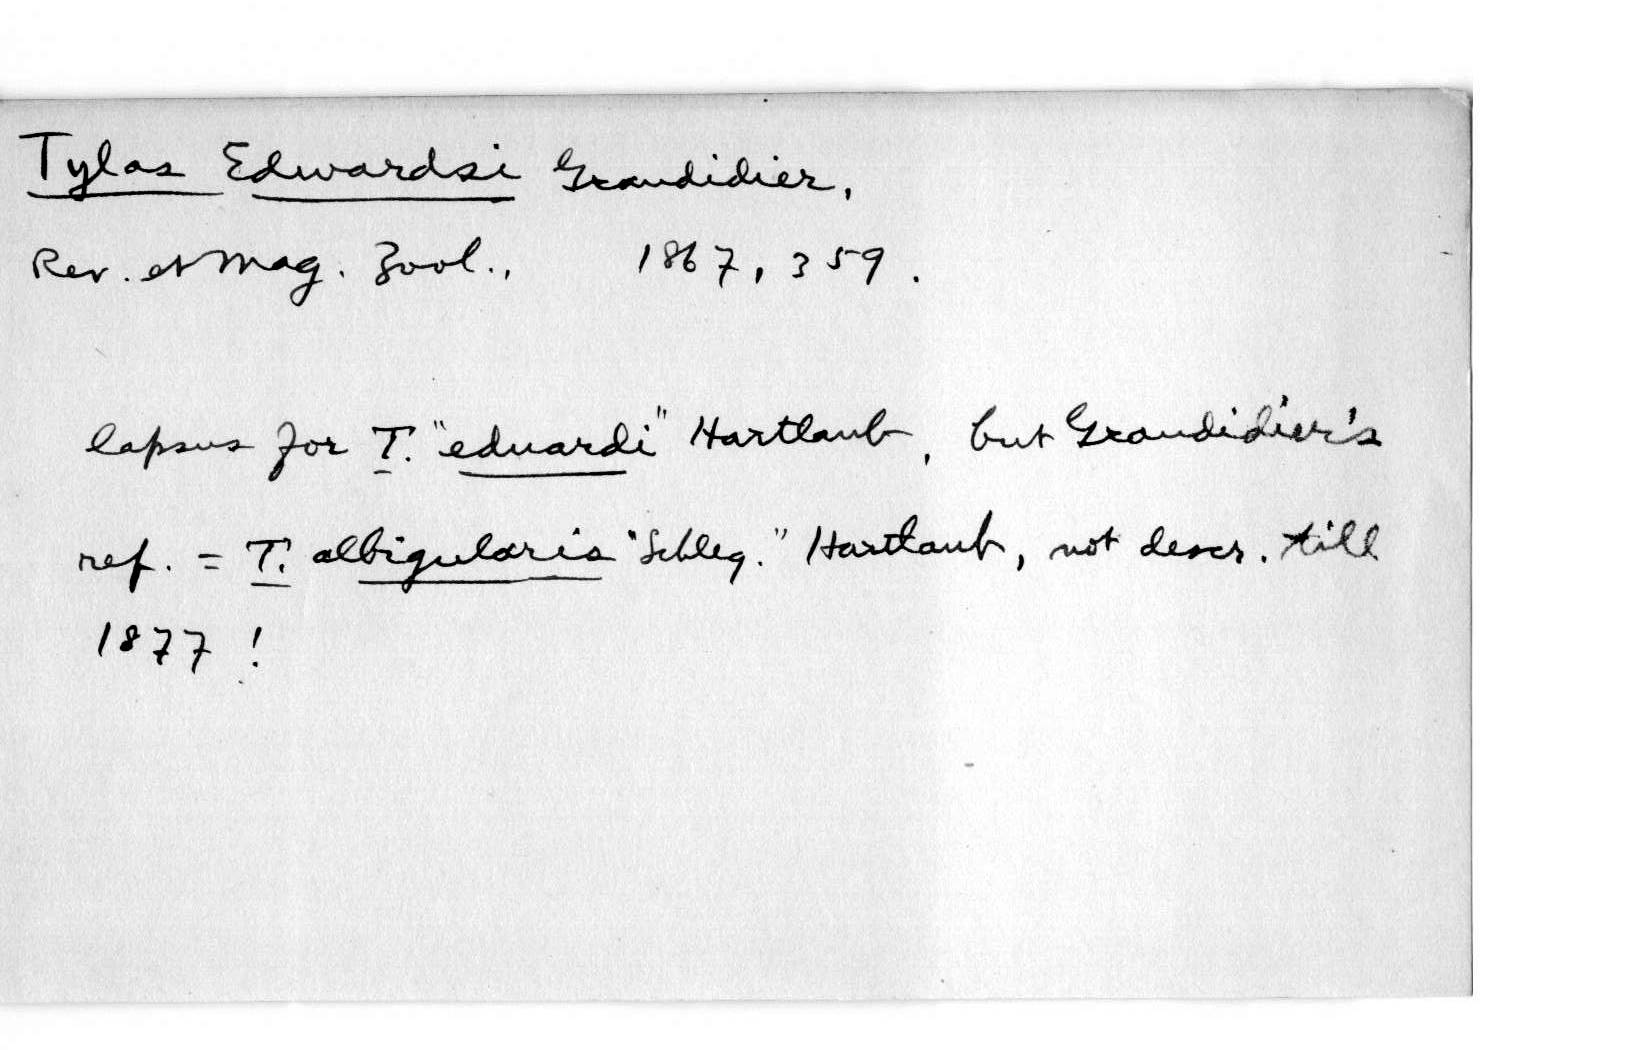 Tylas Edwardsi Grandidier,
Rev. et Mag. Zool., 1867, 359.
lapsus for T. "eduardi" Hartlaub, but Grandidier's
ref. = T. albigularis "Schleg." Hartlaub, not descr. till
1877 !